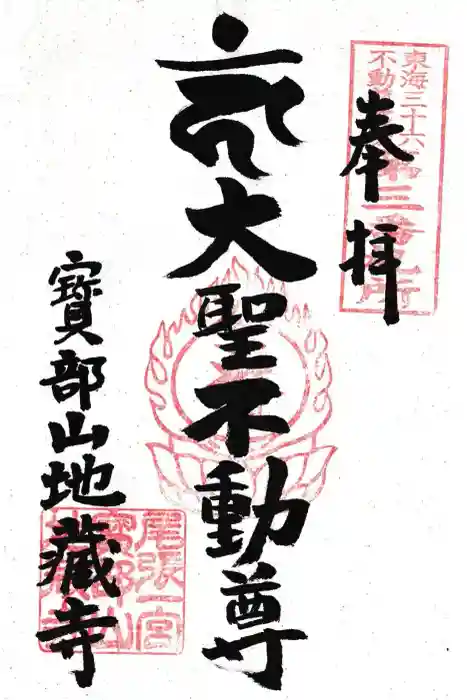 東海三十六
不動
第三番札所
奉拝
大聖不動尊
寶部山地蔵寺
尾張一宮
寶部山
地蔵寺